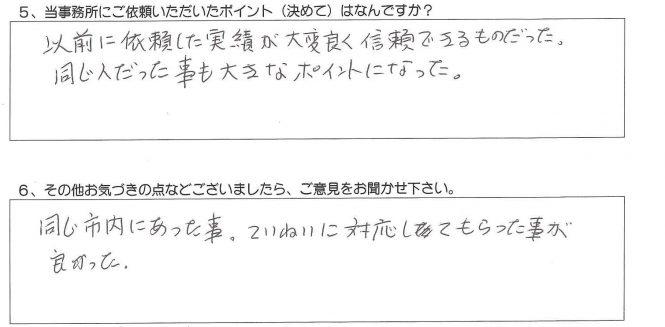 5、当事務所にご依頼いただいたポイント（決めて）はなんですか？
以前に依頼した実績が大変良く信頼できるものだった。
同じ人だった事も大きなポイントになった。
6、その他お気づきの点などございましたら、ご意見をお聞かせ下さい。
同じ市内にあった事。ていねいに対応してもらった事が
良かった.